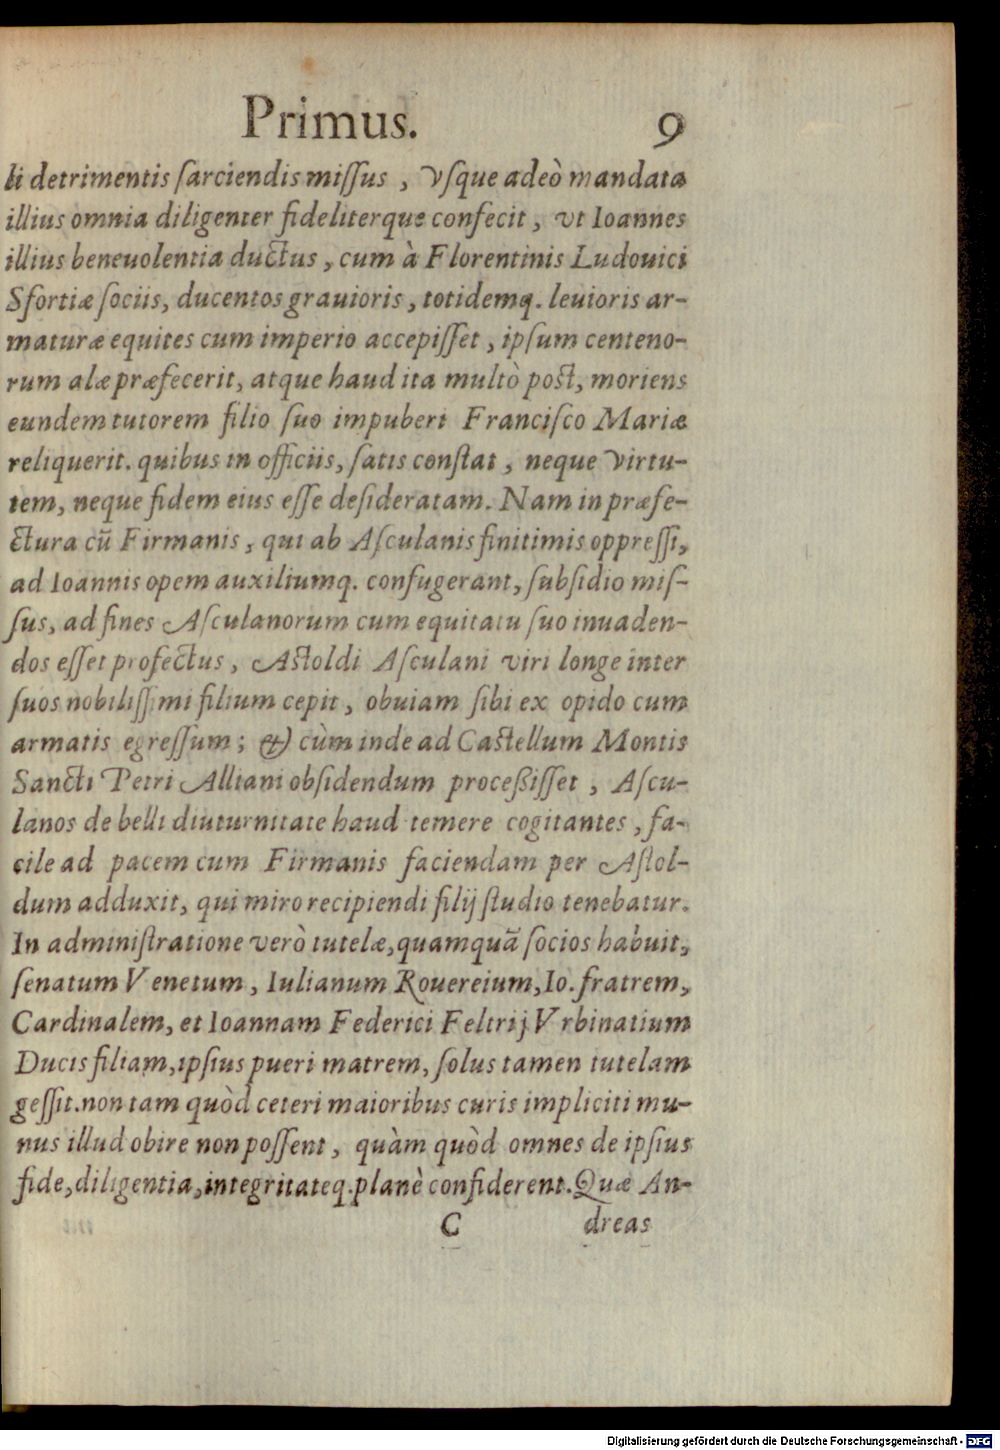 Primus. 9
li detrimentis ſarciendis miſſus, vſque adeò mandata
illius omnia diligenter fideliterque confecit, vt Ioannes
illius beneuolentia ductus, cum à Florentinis Ludouici
Sfortiæ ſociis, ducentos grauioris, totidemq. leuioris ar-
maturæ equites cum imperio accepiſſet, ipſum centeno-
rum alæ præfecerit, atque haud ita multò poſt, moriens
eundem tutorem filio ſuo impuberi Franciſco Mariæ
reliquerit. quibus in officiis, ſatis conſtat, neque virtu-
tem, neque fidem eius eſſe deſideratam. Nam in præfe-
ctura cū Firmanis, qui ab Aſculanis finitimis oppreſſi,
ad Ioannis opem auxiliumq. confugerant, ſubſidio miſ-
ſus, ad fines Aſculanorum cum equitatu ſuo inuaden-
dos eſſet profectus, Aſtoldi Aſculani viri longe inter
ſuos nobiliſſimi filium cepit, obuiam ſibi ex opido cum
armatis egreſſum; & cùm inde ad Caſtellum Montis
Sancti Petri Alliani obſidendum proceßiſſet, Aſcu-
lanos de belli diuturnitate haud temere cogitantes, fa-
cile ad pacem cum Firmanis faciendam per Aſtol-
dum adduxit, qui miro recipiendi filij ſtudio tenebatur.
In adminiſtratione verò tutelæ, quamquā ſocios habuit,
ſenatum Venetum, Iulianum Rouereium, Io. fratrem,
Cardinalem, et Ioannam Federici Feltrij Vrbinatium
Ducis filiam, ipſius pueri matrem, ſolus tamen tutelam
geſſit. non tam quòd ceteri maioribus curis impliciti mu-
nus illud obire non poſſent, quàm quòd omnes de ipſius
fide, diligentia, integritateq. planè confiderent. Quæ An-
C dreas
Digitalisierung gefördert durch die Deutsche Forschungsgemeinschaft - DFG